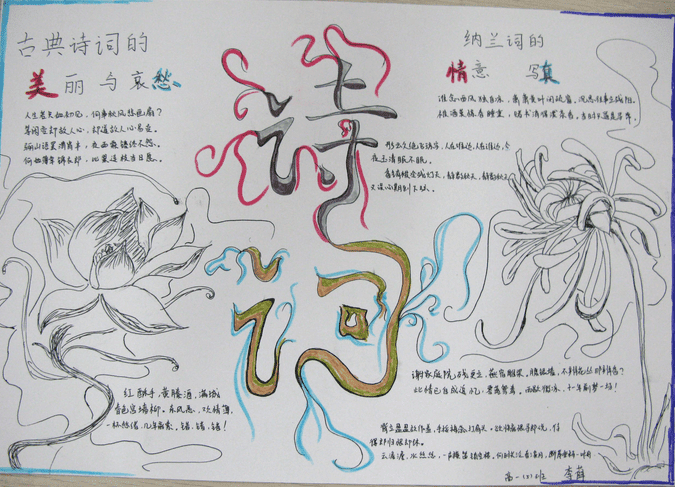 古典诗词的
美丽与哀愁
人生若只如初见，何事秋风悲画扇？
等闲变却故人心，却道故人心易变。
骊山语罢清宵半，夜雨霖铃终不怨。
何如薄幸锦衣郎，比翼连枝当日愿。
诗
词
纳兰词的
情意 写真
谁念西风独自凉，萧萧黄叶闭疏窗，沉思往事立残阳。
被酒莫惊春睡重，赌书消得泼茶香，当时只道是寻常。
人在谁边，人在谁边，今
夜玉清眠不眠。
香销被冷残灯灭，静数秋天，静数秋天，
又误心期到下弦。
红酥手，黄縢酒，满城
春色宫墙柳。东风恶，欢情薄，
一杯愁绪，几年离索。错、错、错！
谢家庭院残更立，燕宿雕梁，月度银墙，不辨花丛那辨香？
此情已自成追忆，零落鸳鸯，雨歇微凉，十一年前梦一场！
高一 班 李